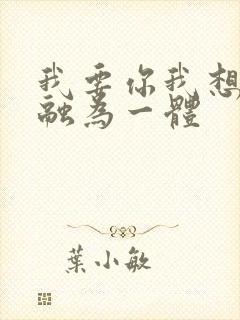 我要你我想
融為一體
葉小敏